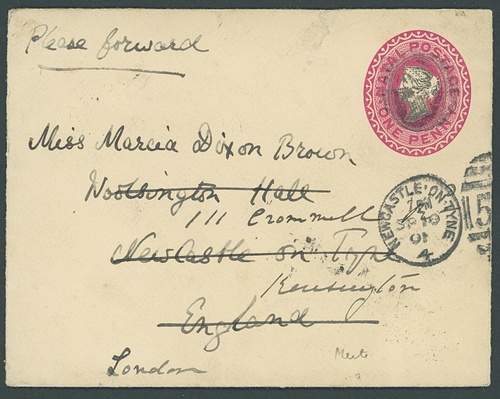 Please forward
NATAL POSTAGE
ONE PENNY
Miss Marcia Dixon Brown
Woolsington Hall
111 Cromwell
Newcastle on Tyne
Kensington
England
London
NEWCASTLE-ON-TYNE
SP 19
01
4
5